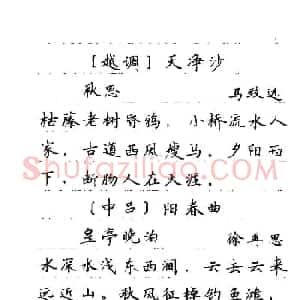 [越调] 天净沙
秋思 马致远
枯藤老树昏鸦，小桥流水人
家，古道西风瘦马，夕阳西
下，断肠人在天涯。
Shufaziliao.com
[中吕] 阳春曲
皇亭晚泊 徐再思
水深水浅东西涧，云去云来
远近山。秋风征棹钓鱼滩，